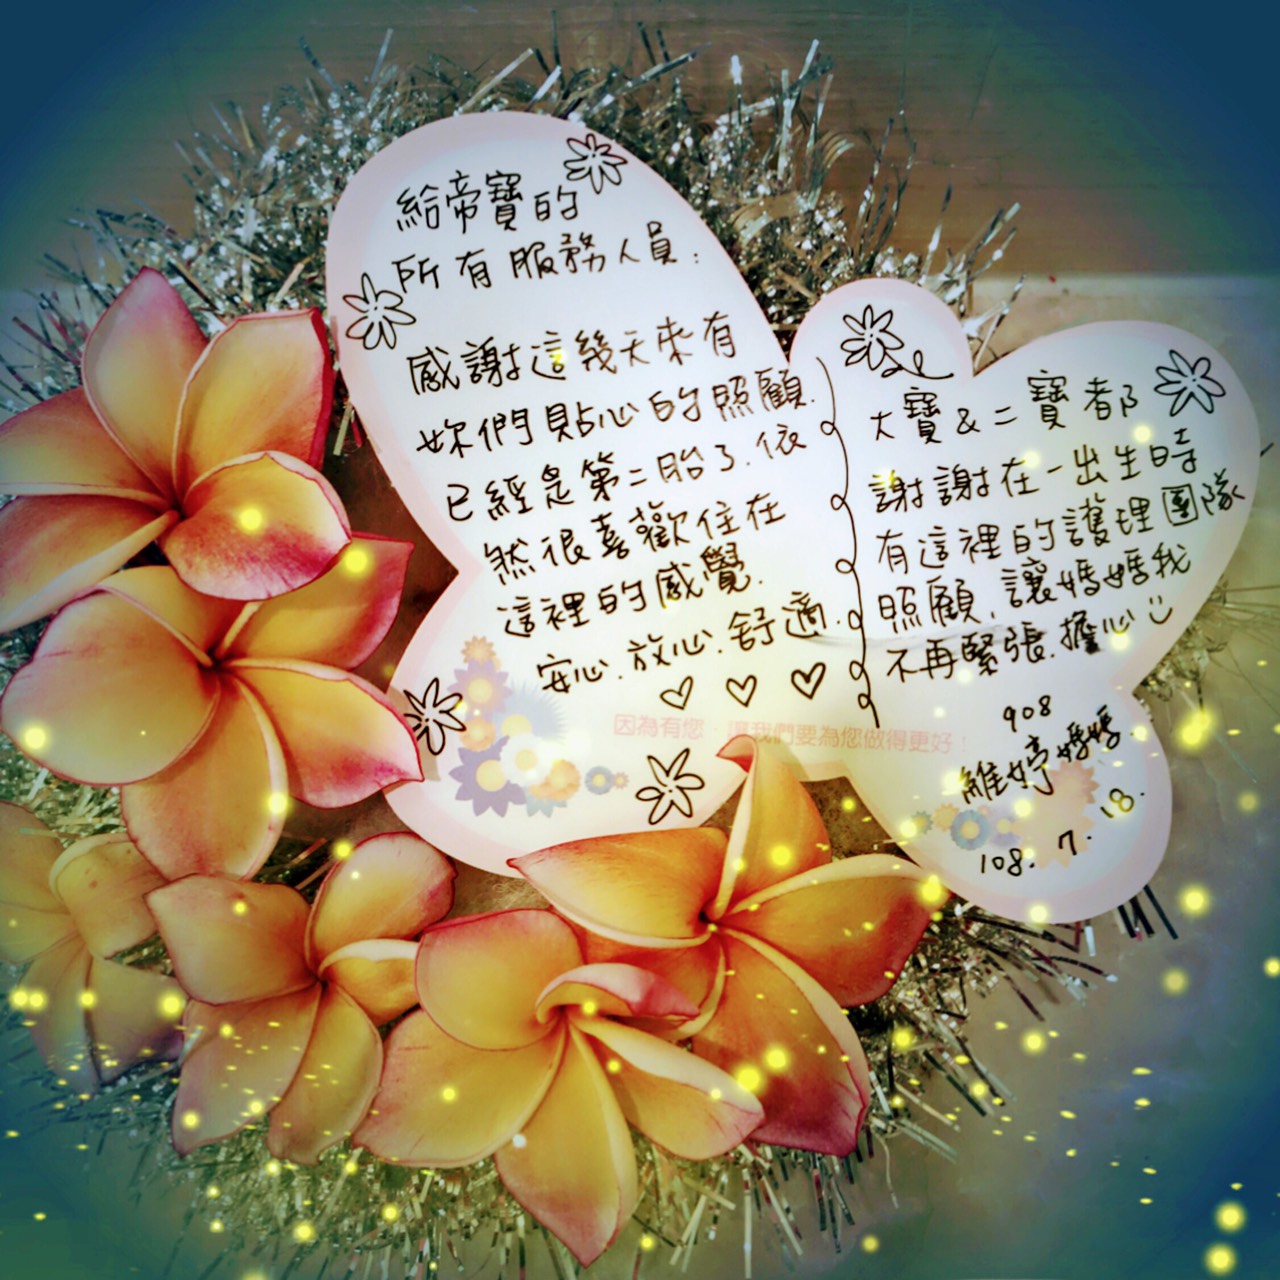 給帝寶的
所有服務人員:
感謝這幾天來有
妳們貼心的照顧.
已經是第二胎了.依
然很喜歡住在
這裡的感覺.
安心.放心.舒適.
♡ ♡ ♡
大寶&二寶都
謝謝在一出生時
有這裡的護理團隊
照顧.讓媽媽我
不再緊張.擔心
908
維婷媽媽.
108.7.18.
因為有您,讓我們要為您做得更好!